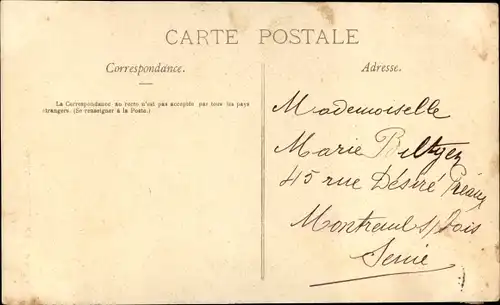 CARTE POSTALE
Correspondance.
La Correspondance au recto n'est pas acceptée par tous les pays
étrangers. (Se renseigner à la Poste.)
Adresse.
Mademoiselle
Marie
45 rue Désiré Préaux
Montreuil s/bois
Seine